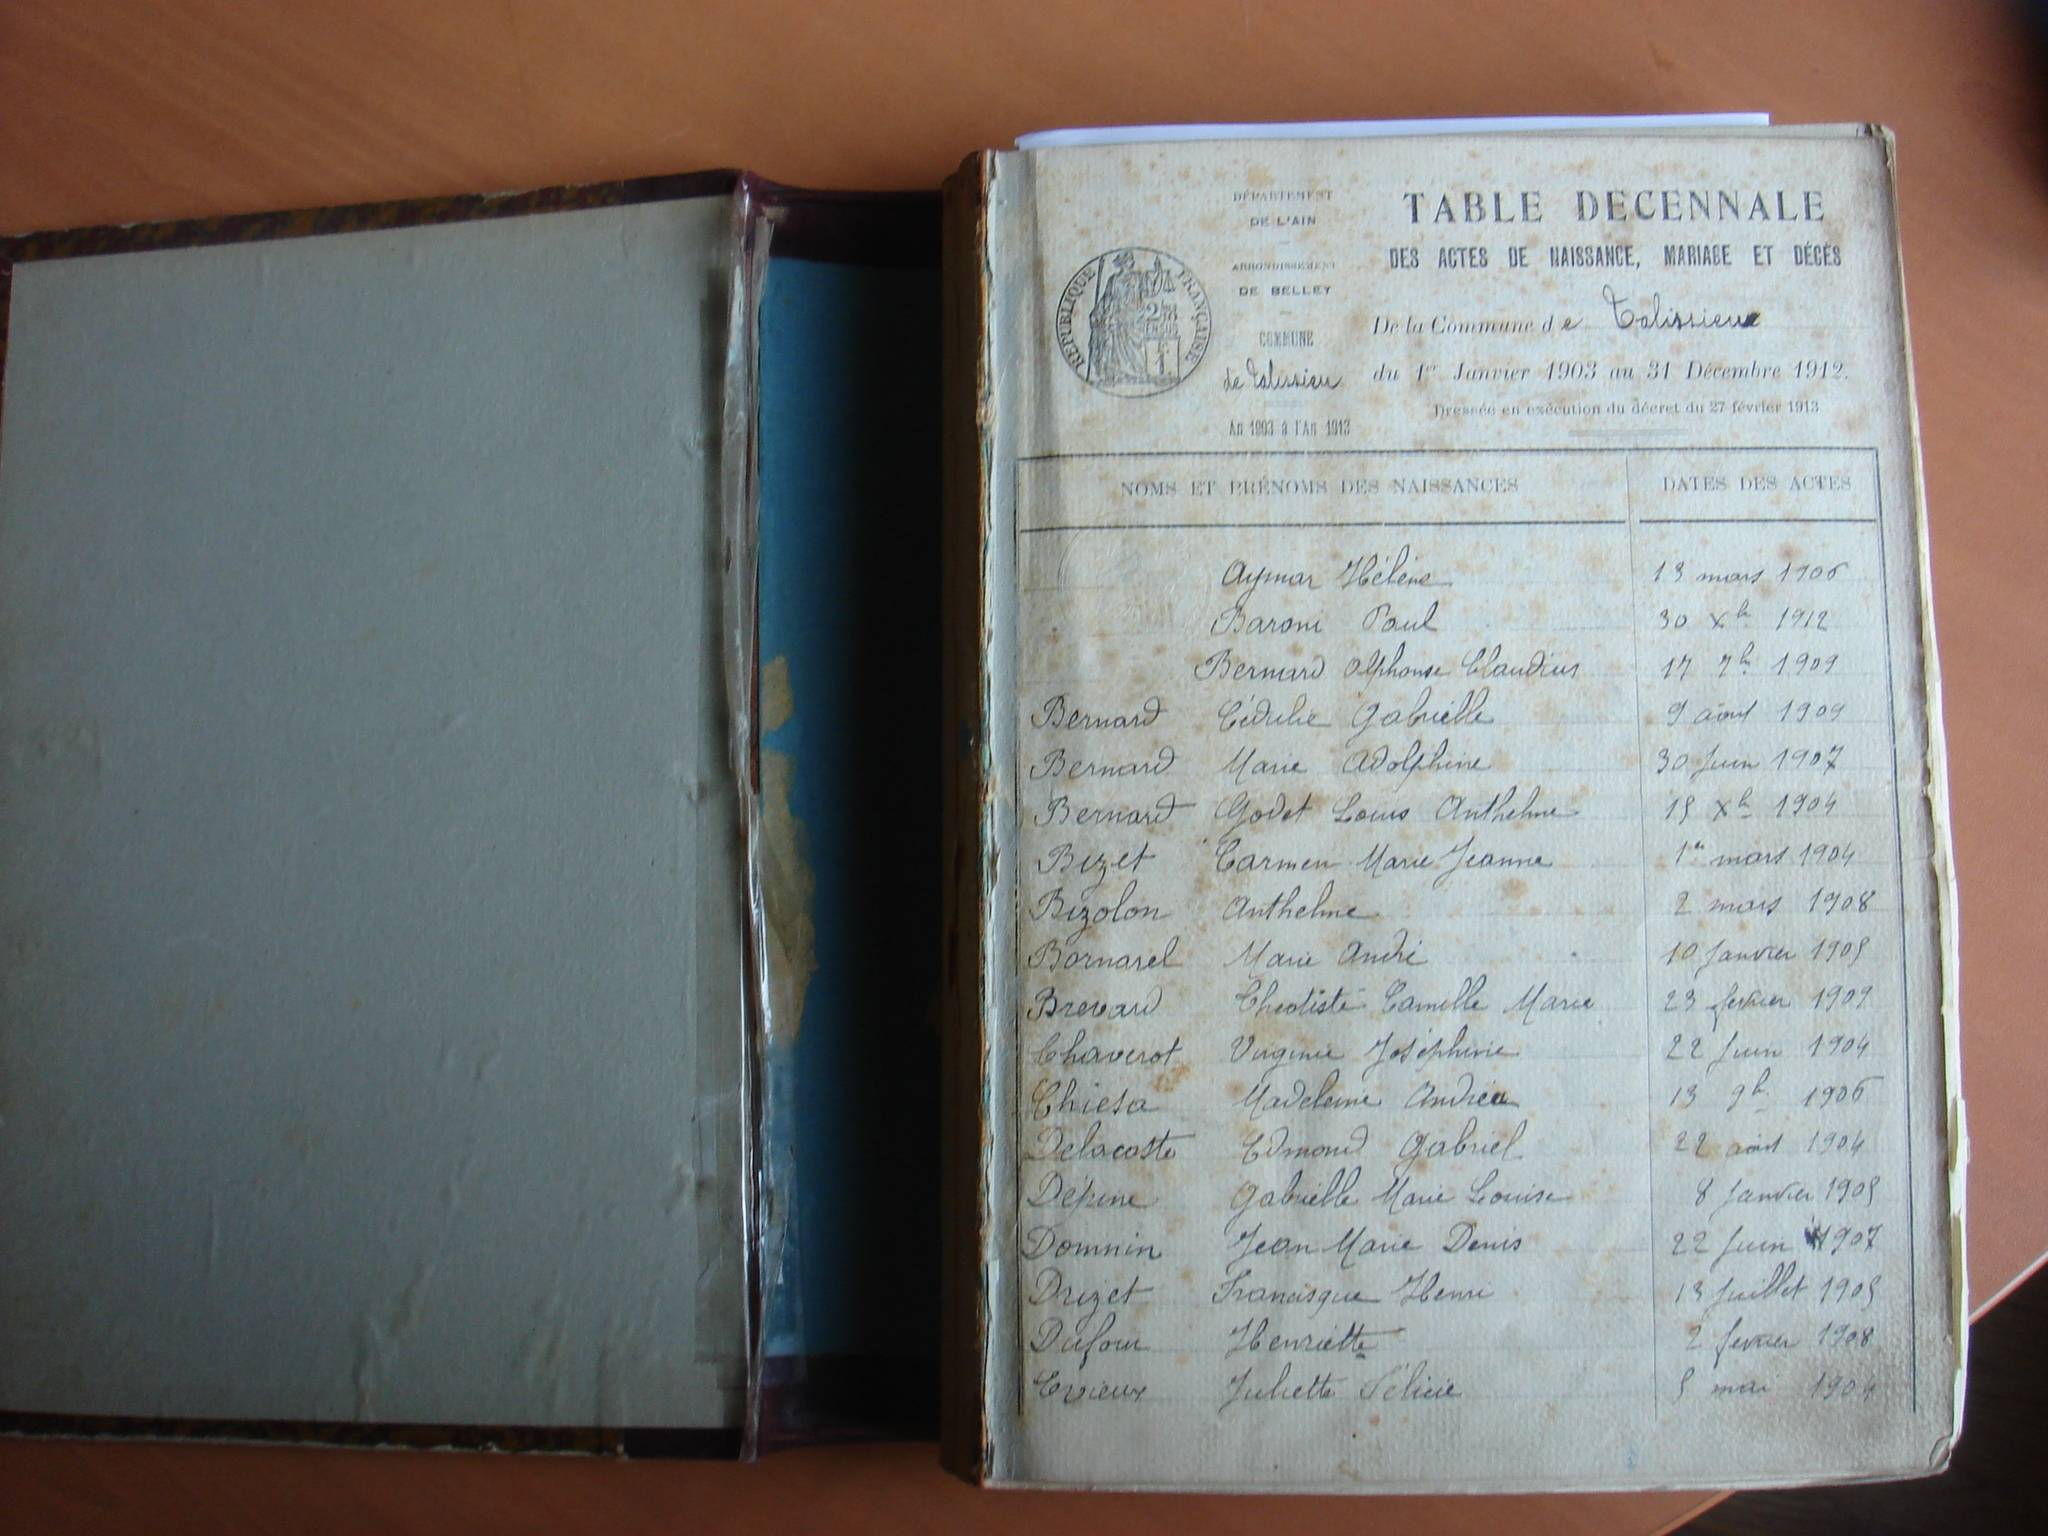 DÉPARTEMENT
DE L'AIN
ARRONDISSEMENT
DE BELLEY
COMMUNE
de Talissieu
An 1903 à l'An 1913
RÉPUBLIQUE FRANÇAISE
TABLE DECENNALE
DES ACTES DE NAISSANCE, MARIAGE ET DÉCÈS
De la Commune de Talissieu
du 1er Janvier 1903 au 31 Décembre 1912.
Dressée en exécution du décret du 27 février 1913
NOMS ET PRÉNOMS DES NAISSANCES DATES DES ACTES
Aymar Hélène 13 mars 1906
Baroni Paul 30 Xbre 1912
Bernard Alphonse Claudius 17 7bre 1909
Bernard Gabrielle 9 août 1909
Bernard Marie Adolphine 30 Juin 1907
Bernard Godet Louis Anthelme 15 Xbre 1904
Bizet Carmen Marie Jeanne 1er mars 1904
Bizolon Anthelme 2 mars 1908
Bornarel Marie André 10 Janvier 1905
Brevard Théotiste Camille Marie 23 fevrier 1909
Chaverot Virginie Joséphine 22 Juin 1904
Chiesa Madeleine Andréa 13 9bre 1906
Delacoste Edmond Gabriel 22 août 1904
Dépine Gabrielle Marie Louise 8 Janvier 1905
Domnin Jean Marie Denis 22 Juin 1907
Drizet Francisque Henri 13 Juillet 1905
Dufour Henriette 2 fevrier 1908
Evieux Juliette Félicie 5 mai 1904